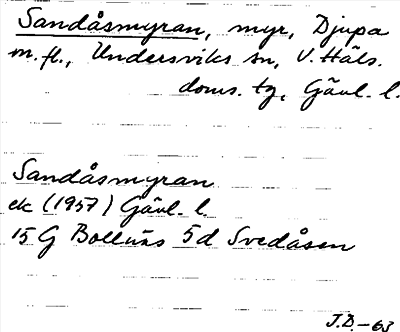 Sandåsmyran, myr, Djupa
m.fl., Undersviks sn, V. Häls.
doms. tg, Gävl. l.
Sandåsmyran
ek (1957) Gävl. l.
15 G Bollnäs 5d Svedåsen
J.D.-63